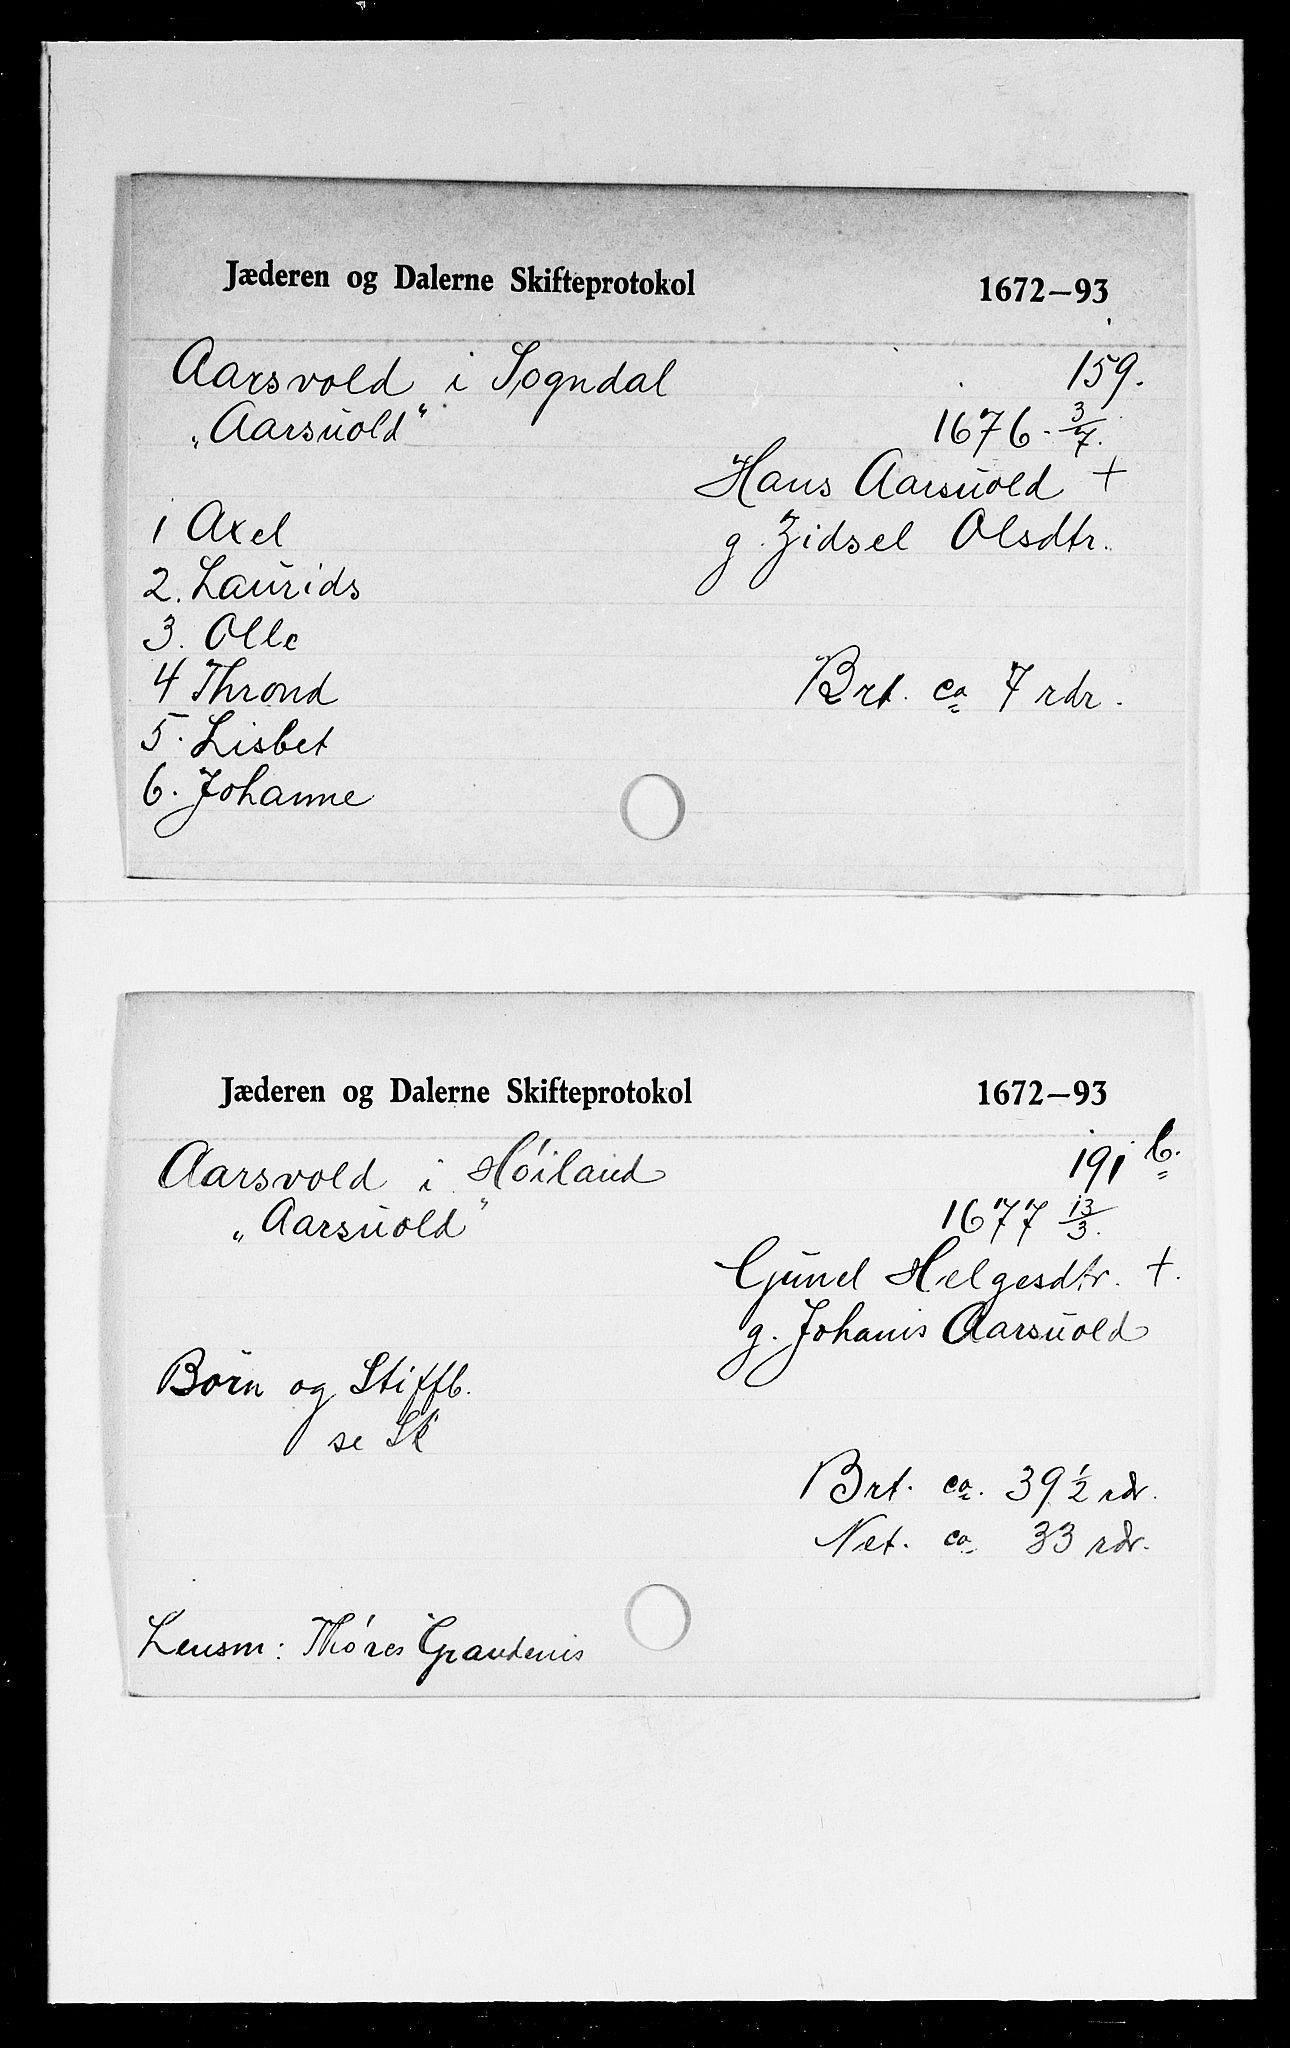 Jæderen og Dalerne Skifteprotokol 1672—93
Aarsvold i Sogndal 159.
„Aarsuold" 1676. 3/7.
Hans Aarsuold +
1 Axel g. Zidsel Olsdtr.
2. Laurids
3. Olle
4 Thrond Brt. ca 7 rdr.
5. Lisbet
6. Johanne
Jæderen og Dalerne Skifteprotokol 1672—93
Aarsvold i Høiland 191 b.
„Aarsuold" 1677 13/3.
Gunel Helgesdtr. +.
g. Johanis Aarsuold
Børn og Stiffb.
se Sk
Brt. ca. 39 1/2 rdr.
Net. ca 33 rdr.
Lensm: Thøres Graudenis